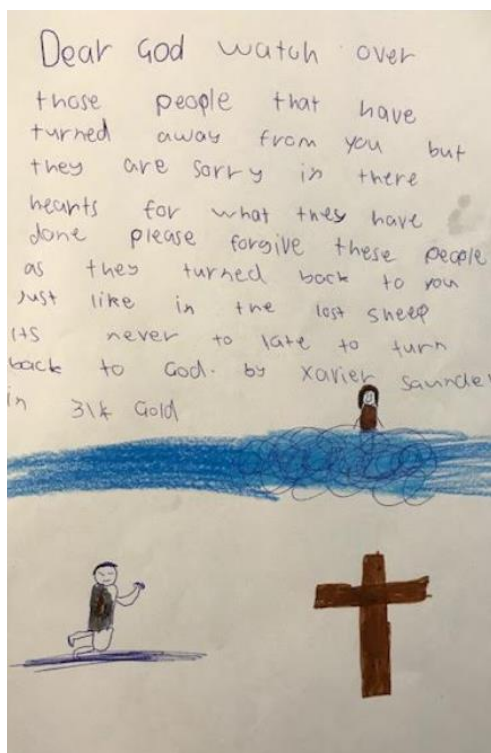 Dear God watch over
those people that have
turned away from you but
they are sorry in there
hearts for what they have
done please forgive these people
as they turned back to you
Just like in the lost sheep
its never to late to turn
back to God. by Xavier Saunder
in 31k Gold